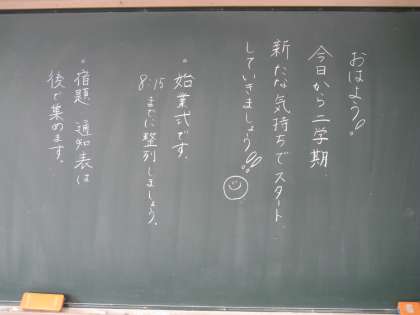 おはよう!!
今日から二学期.
新たな気持ちでスタート
していきましょう!!
・始業式です.
8:15までに整列しましょう.
・宿題 通知表は
後で集めます.